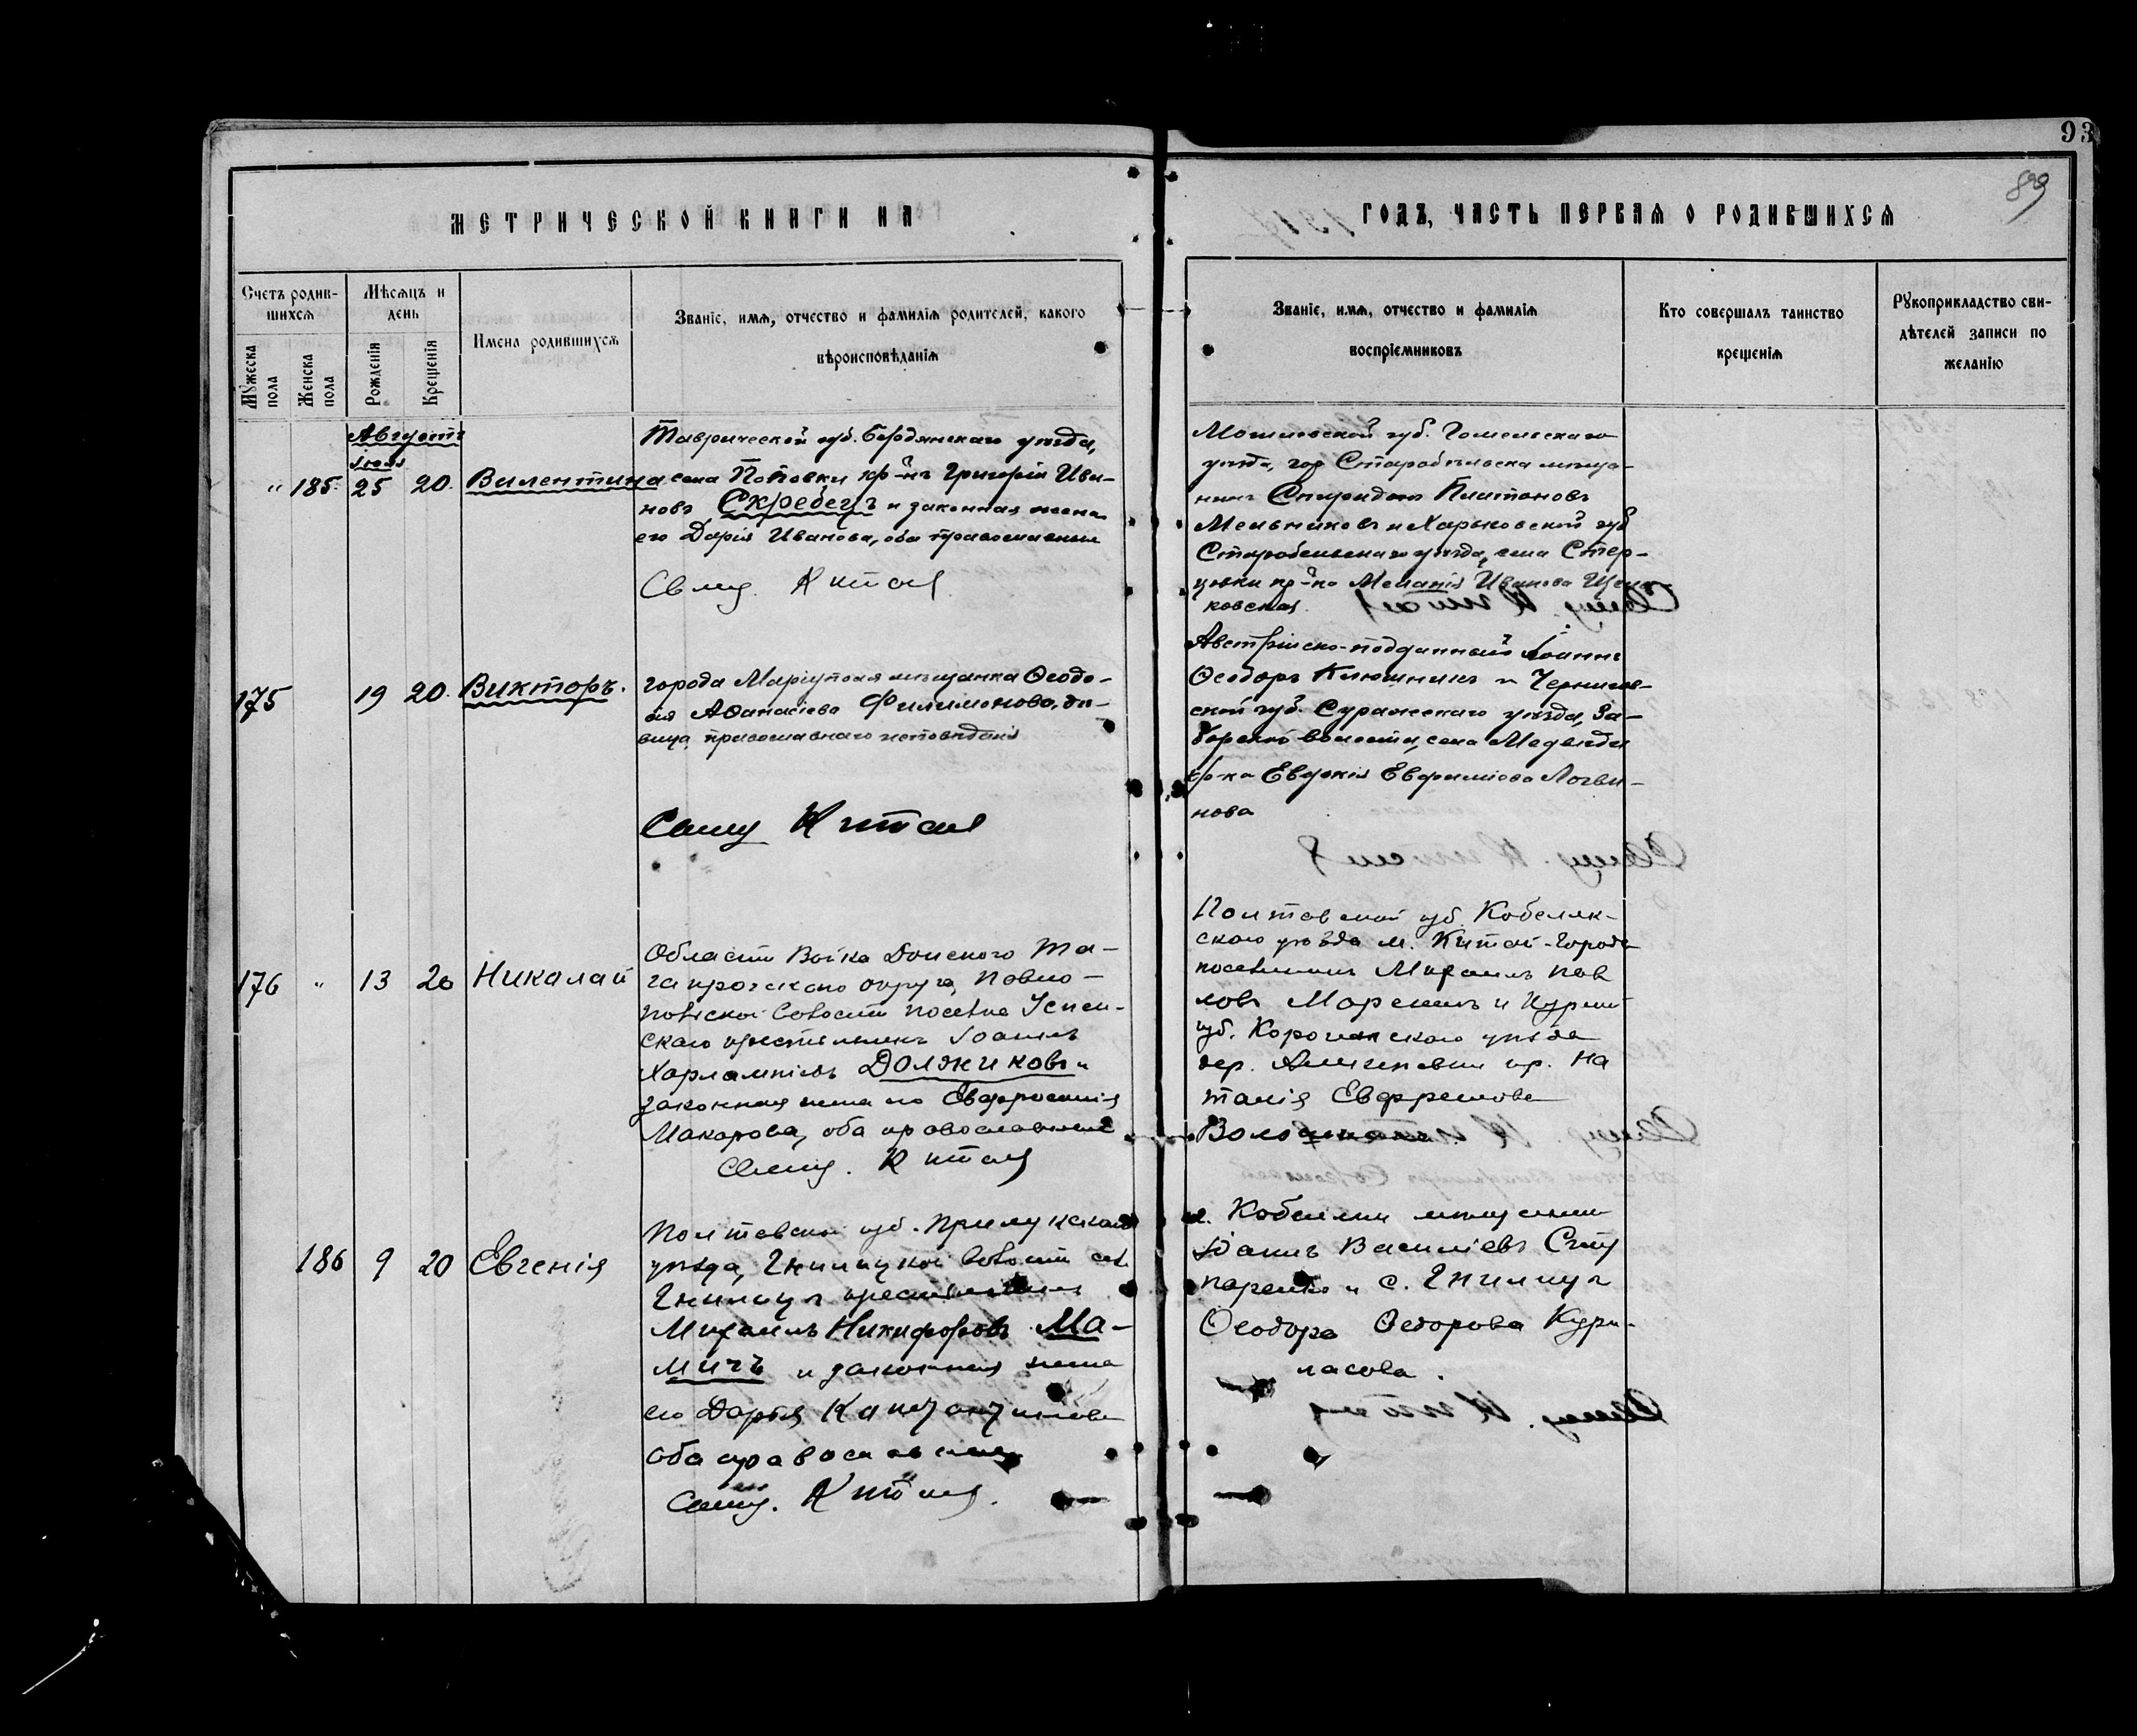 93
89
МЕТРИЧЕСКОЙ КНИГИ НА
ГОДЪ, ЧАСТЬ ПЕРВАѦ О РОДИВШИХСѦ
Счетъ родив-
шихсѧ
Мѣсѧцъ и
день
Имена родившихсѧ
Званіе, имѧ, отчество и фамиліѧ родителей, какого
вѣроисповѣданіѧ
Мꙋжеска
пола
Женска
пола
Рожденія
Крещенія
Званіе, имѧ, отчество и фамиліѧ
воспріемниковъ
Кто совершалъ таинство
крещеніѧ
Рꙋкоприкладство сви-
дѣтелей записи по
желанію
Августъ
" 185. 25 20. Валентина
Таврической губ. Бердянскаго уѣзда,
села Поповки кр-нъ Григорій Ива-
новъ Скребецъ и законная жена
его Дарія Иванова, оба православные
Свящ. Китай
Могилевской губ. Гомельскаго
уѣзда, гор Старобѣльска мѣща-
нинъ Спиридонъ Платоновъ
Мельниковъ и Харьковской губ
Старобельскаго уѣзда, села
кр-ка Меланія Иванова
ковская.
175 19 20. Викторъ.
города Маріуполя мѣщанка Ѳеодо-
сія Аѳанасіева Филимонова, дѣ-
вица, православнаго исповѣданія
Свящ Китай
Австрійско-подданный Іоаннъ
Ѳеодоръ Ключникъ и Чернигов-
ской губ. Суражскаго уѣзда, За-
борской волости, села Медвѣди
кр-ка Евдокія Евфиміева Логви-
нова
176 " 13 20 Николай
Области Войска Донского Та-
ганрогскаго округа,
волости поселка Успен-
скаго крестьянинъ Іоаннъ
Харлампіевъ Должиковъ и
законная жена его Евфросинія
Макарова, оба православные
Свящ. Китай
Полтавской губ. Кобеляк-
скаго уѣзда м. Китай-Города
поселянинъ Михаилъ Пав
ловъ и Курской
губ. Корочанскаго уѣзда
дер. кр. На
талія
186 9 20 Евгенія
Полтавской губ. Прилукскаго
уѣзда, Гнилицкой волости сел.
Гнилицъ крестьянинъ
Михаилъ Никифоровъ Ма-
мичъ и законная жена
его Дарья Константинова
оба православные
Свящ. Китай.
г. Кобеляки мѣщанинъ
Іоаннъ Василіевъ Слю
паренко и с. Гнилицъ
Ѳеодора Ѳедорова Кури-
ласова.